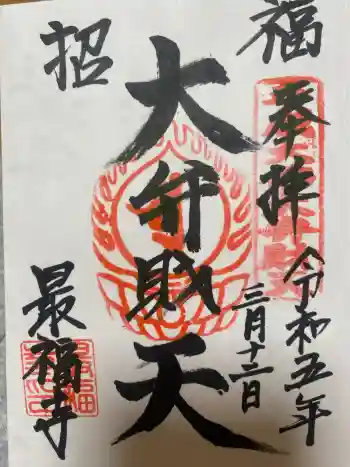 福
奉拝
令和五年
三月十二日
大弁財天
招
最福寺